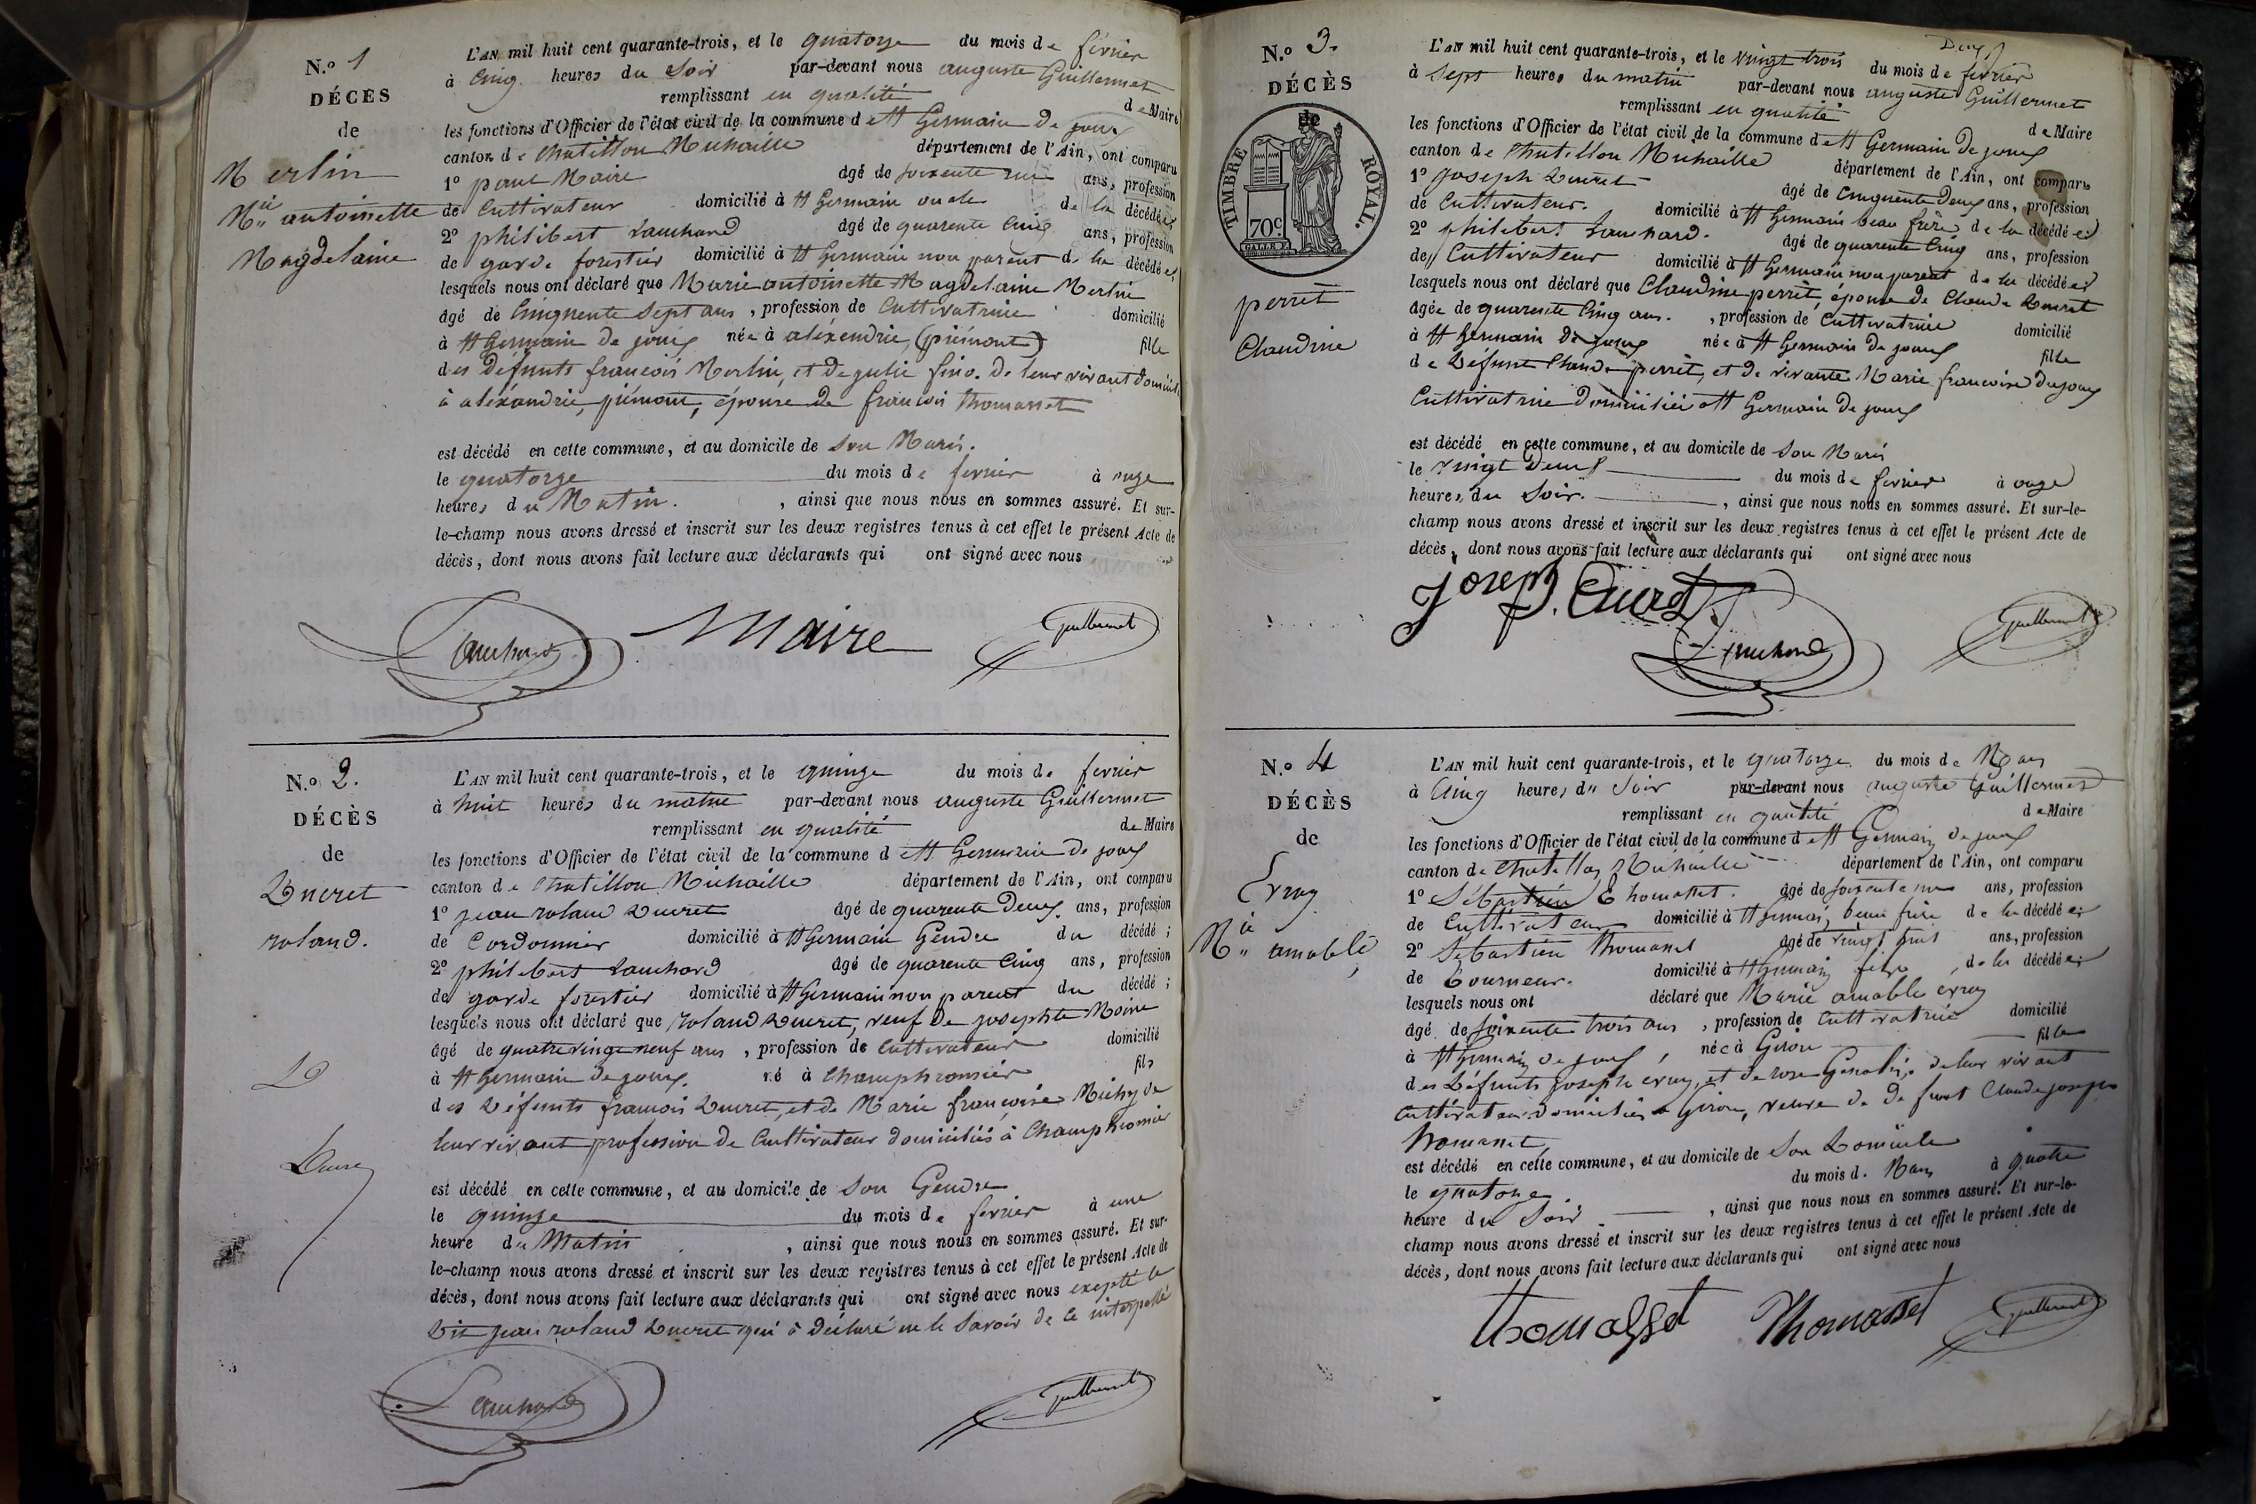 N.o 1
DÉCÈS
de
Merlin
Mie antoinette
Magdelaine
L'AN mil huit cent quarante-trois, et le quatorze du mois de fevrier
à cinq heures du soir par-devant nous auguste Guillermet
remplissant en qualité de Maire
les fonctions d'Officier de l'état civil de la commune de St Germain de joux
canton de Chatillon Michaille département de l'Ain, ont comparu
1o paul Maire âgé de soixente ans, profession
de Cultivateur domicilié à St Germain oncle de la décédée;
2o philibert Lauchard âgé de quarente cinq ans, profession
de garde forestier domicilié à St Germain non parent de la décédée;
lesquels nous ont déclaré que Marie antoinette Magdelaine Merlin
âgé de cinquente sept ans, profession de Cultivatrice domicilié
à St Germain de joux née à aléxendrie (piémont) fille
des défunts francois Merlin, et de julie fino. de leur vivant domicilié
à aléxandrie, piémont, épouse de francois thomasset
est décédé en cette commune, et au domicile de son Maris.
le quatorze du mois de fevrier à onze
heures du Matin. , ainsi que nous nous en sommes assuré. Et sur-
le-champ nous avons dressé et inscrit sur les deux registres tenus à cet effet le présent Acte de
décès, dont nous avons fait lecture aux déclarants qui ont signé avec nous
Lauchard Maire Guillermet
N.o 2.
DÉCÈS
de
Ducret
roland.
D
Ducret
L'AN mil huit cent quarante-trois, et le quinze du mois de fevrier
à huit heures du matin par-devant nous auguste Guillermet
remplissant en qualité de Maire
les fonctions d'Officier de l'état civil de la commune de St Germain de joux
canton de Chatillon Michaille département de l'Ain, ont comparu
1o jean roland Ducret âgé de quarente deux ans, profession
de Cordonnier domicilié à St Germain Gendre du décédé;
2o philibert Lauchard âgé de quarente cinq ans, profession
de garde forestier domicilié à St Germain non parent du décédé;
lesquels nous ont déclaré que roland Ducret, veuf de josephte Moine
âgé de quatre vingt neuf ans, profession de Cultivateur domicilié
à St Germain de joux. né à Champfromier fils
des Défunts francois Ducret, et de Marie francoise Michy de
leur vivant profession de Cultivateur domiciliés à Champfromier
est décédé en cette commune, et au domicile de son Gendre
le quinze du mois de fevrier à une
heure du Matin , ainsi que nous nous en sommes assuré. Et sur-
le-champ nous avons dressé et inscrit sur les deux registres tenus à cet effet le présent Acte de
décès, dont nous avons fait lecture aux déclarants qui ont signé avec nous exepté le
Dit jean roland Ducret qui a déclaré ne le savoir de ce interpellé
Lauchard Guillermet
Deux
N.o 3.
DÉCÈS
de
TIMBRE ROYAL.
70c
perret
Claudine
L'AN mil huit cent quarante-trois, et le vingt trois du mois de fevrier
à sept heures du matin par-devant nous auguste Guillermet
remplissant en qualité de Maire
les fonctions d'Officier de l'état civil de la commune de St Germain de joux
canton de Chatillon Michaille département de l'Ain, ont comparu
1o joseph Ducret âgé de cinquente deux ans, profession
de Cultivateur. domicilié à St Germain beau frère de la décédée;
2o philibert Lauchard. âgé de quarente cinq ans, profession
de Cultivateur domicilié à St Germain non parent de la décédée;
lesquels nous ont déclaré que Claudine perret, épouse de Claude Ducret
âgée de quarente cinq ans. , profession de Cultivatrice domicilié
à St Germain de joux née à St Germain de joux fille
de Défunt Claude perret, et de vivante Marie francoise Dujoux
Cultivatrice domiciliée à St Germain de joux
est décédé en cette commune, et au domicile de son Maris
le vingt Deux du mois de fevrier à onze
heures du soir. , ainsi que nous nous en sommes assuré. Et sur-le-
champ nous avons dressé et inscrit sur les deux registres tenus à cet effet le présent Acte de
décès, dont nous avons fait lecture aux déclarants qui ont signé avec nous
joseph. Ducret Lauchard Guillermet
N.o 4
DÉCÈS
de
Evray
Mie amable
L'AN mil huit cent quarante-trois, et le quatorze du mois de Mars
à cinq heures du soir par-devant nous auguste Guillermet
remplissant en qualité de Maire
les fonctions d'Officier de l'état civil de la commune de St Germain de joux
canton de Chatillon Michaille département de l'Ain, ont comparu
1o Sébastien Thomasset. âgé de soixente ans, profession
de Cultivateur domicilié à St Germain beau frère de la décédée;
2o Sébastien Thomasset âgé de vingt huit ans, profession
de tourneur. domicilié à St Germain fils de la décédée;
lesquels nous ont déclaré que Marie amable evray
âgé de soixente trois ans, profession de Cultivatrice domicilié
à St Germain de joux, née à Giron fille
des Défunts joseph evray, et de rose de leur vivant
cultivateur domiciliés à Giron, veuve de defunt Claude joseph
thomasset,
est décédé en cette commune, et au domicile de son Domicile
le quatorze du mois d. Mars à quatre
heure du soir , ainsi que nous nous en sommes assuré. Et sur-le-
champ nous avons dressé et inscrit sur les deux registres tenus à cet effet le présent Acte de
décès, dont nous avons fait lecture aux déclarants qui ont signé avec nous
thomasset Thomasset Guillermet